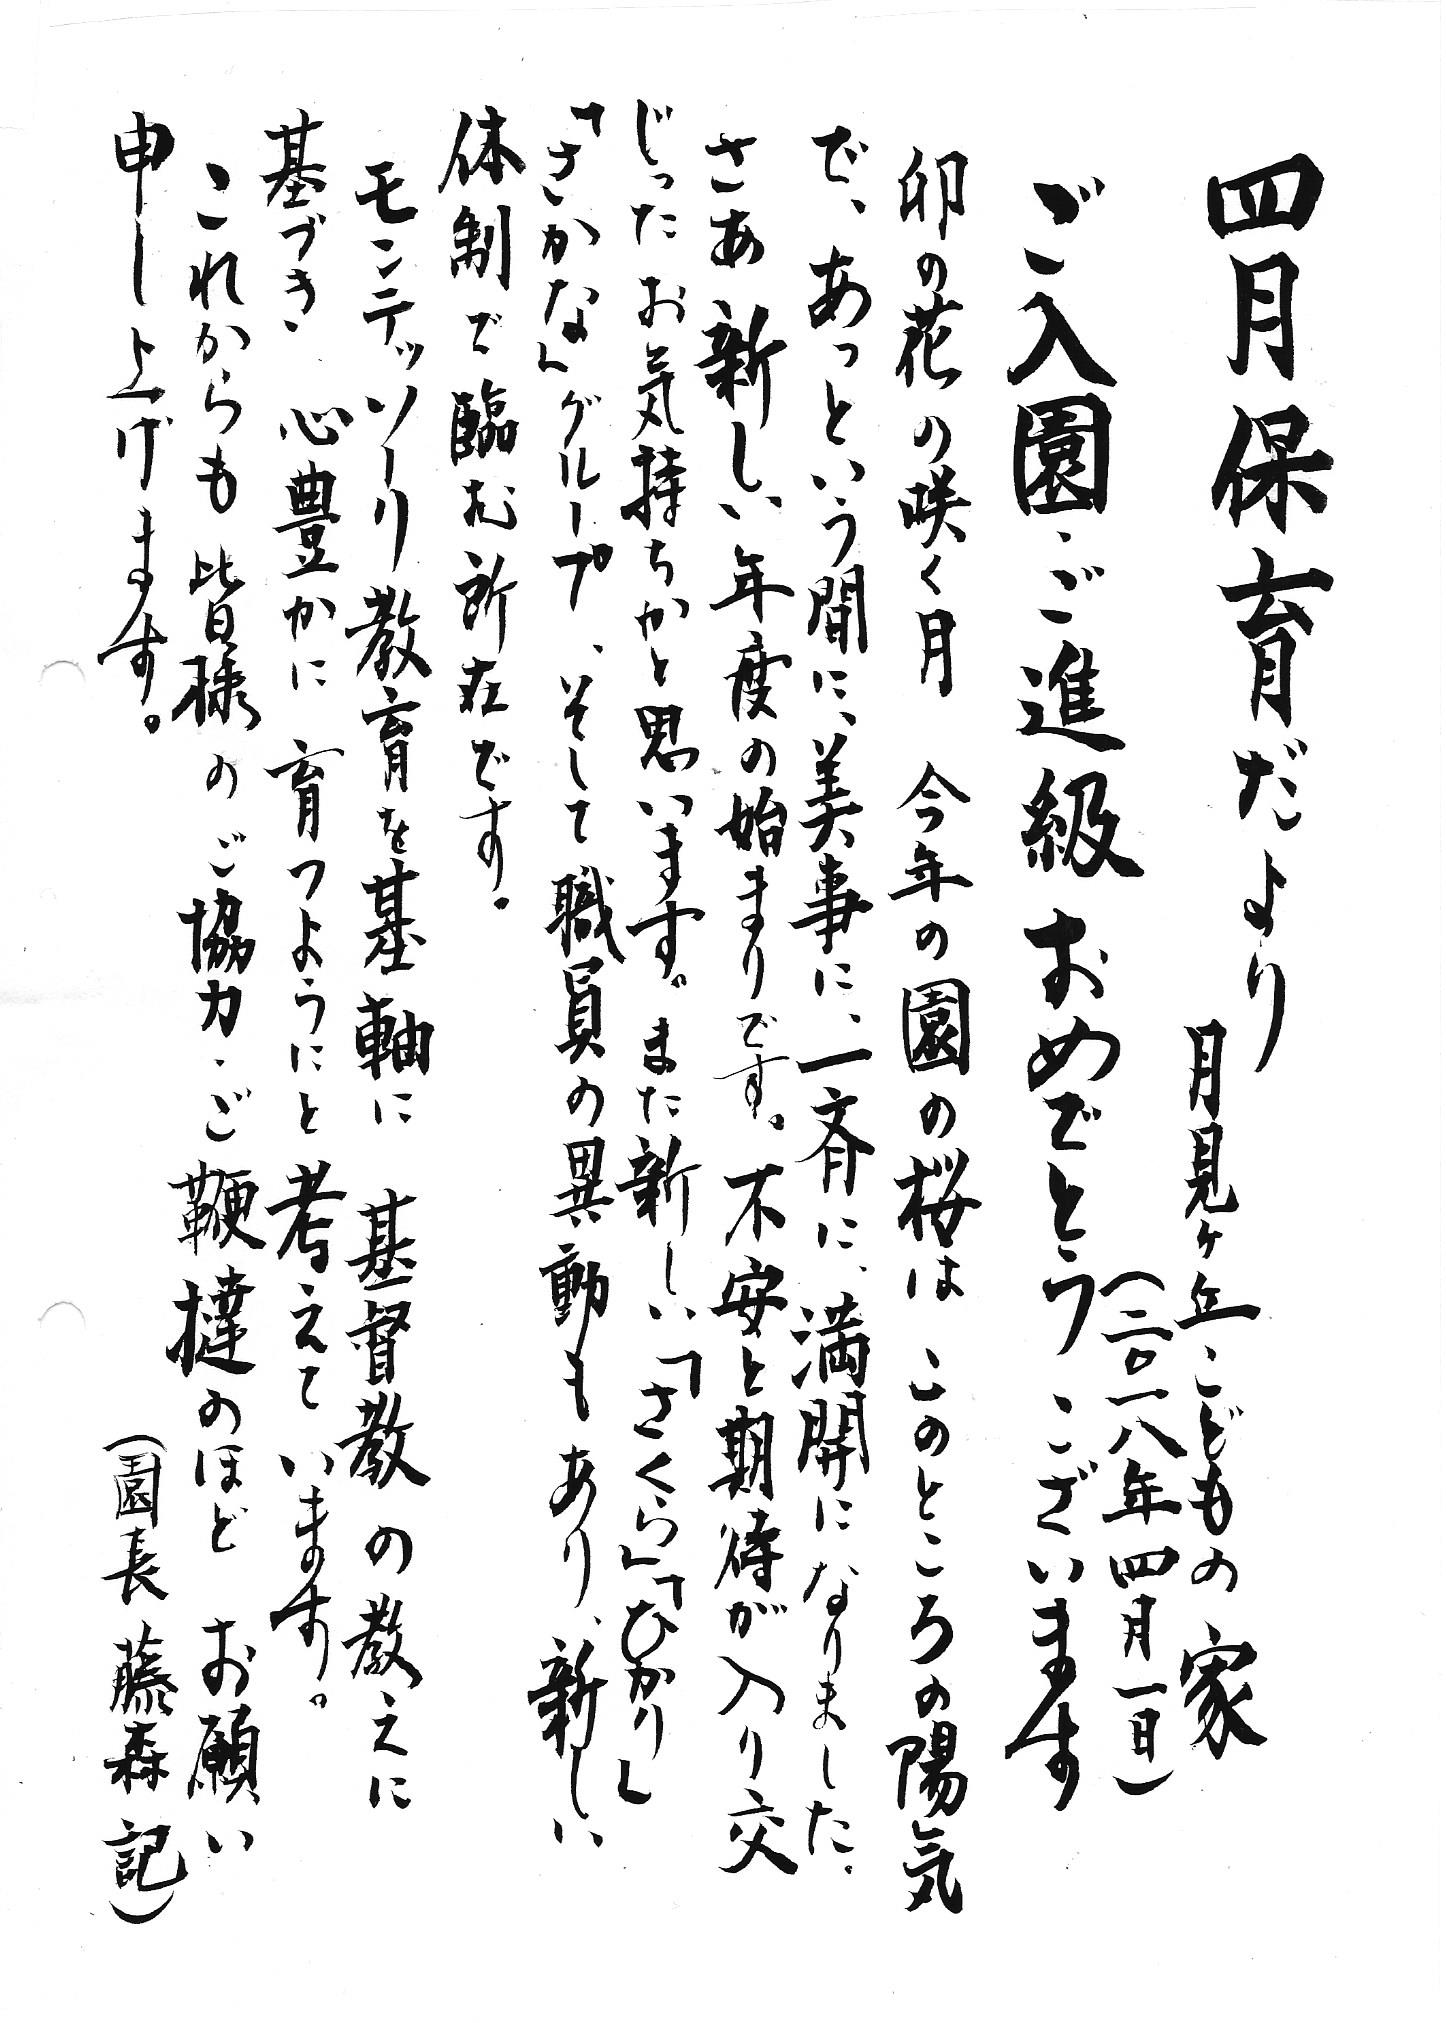 四月保育だより
月見ヶ丘こどもの家
(二〇一八年四月一日)
ご入園・ご進級おめでとうございます
卯の花の咲く月 今年の園の桜は このところの陽気
で、あっという間に、美事に、一斉に、満開になりました。
さあ新しい年度の始まりです。不安と期待が入り交
じったお気持ちかと思います。また新しい「さくら」「ひかり」
「さかな」グループ、そして職員の異動もあり、新しい
体制で臨む所在です。
モンテッソーリ教育を基軸に 基督教の教えに
基づき、心豊かに育つようにと考えています。
これからも皆様のご協力・ご鞭撻のほど お願い
申し上げます。
(園長 藤森 記)